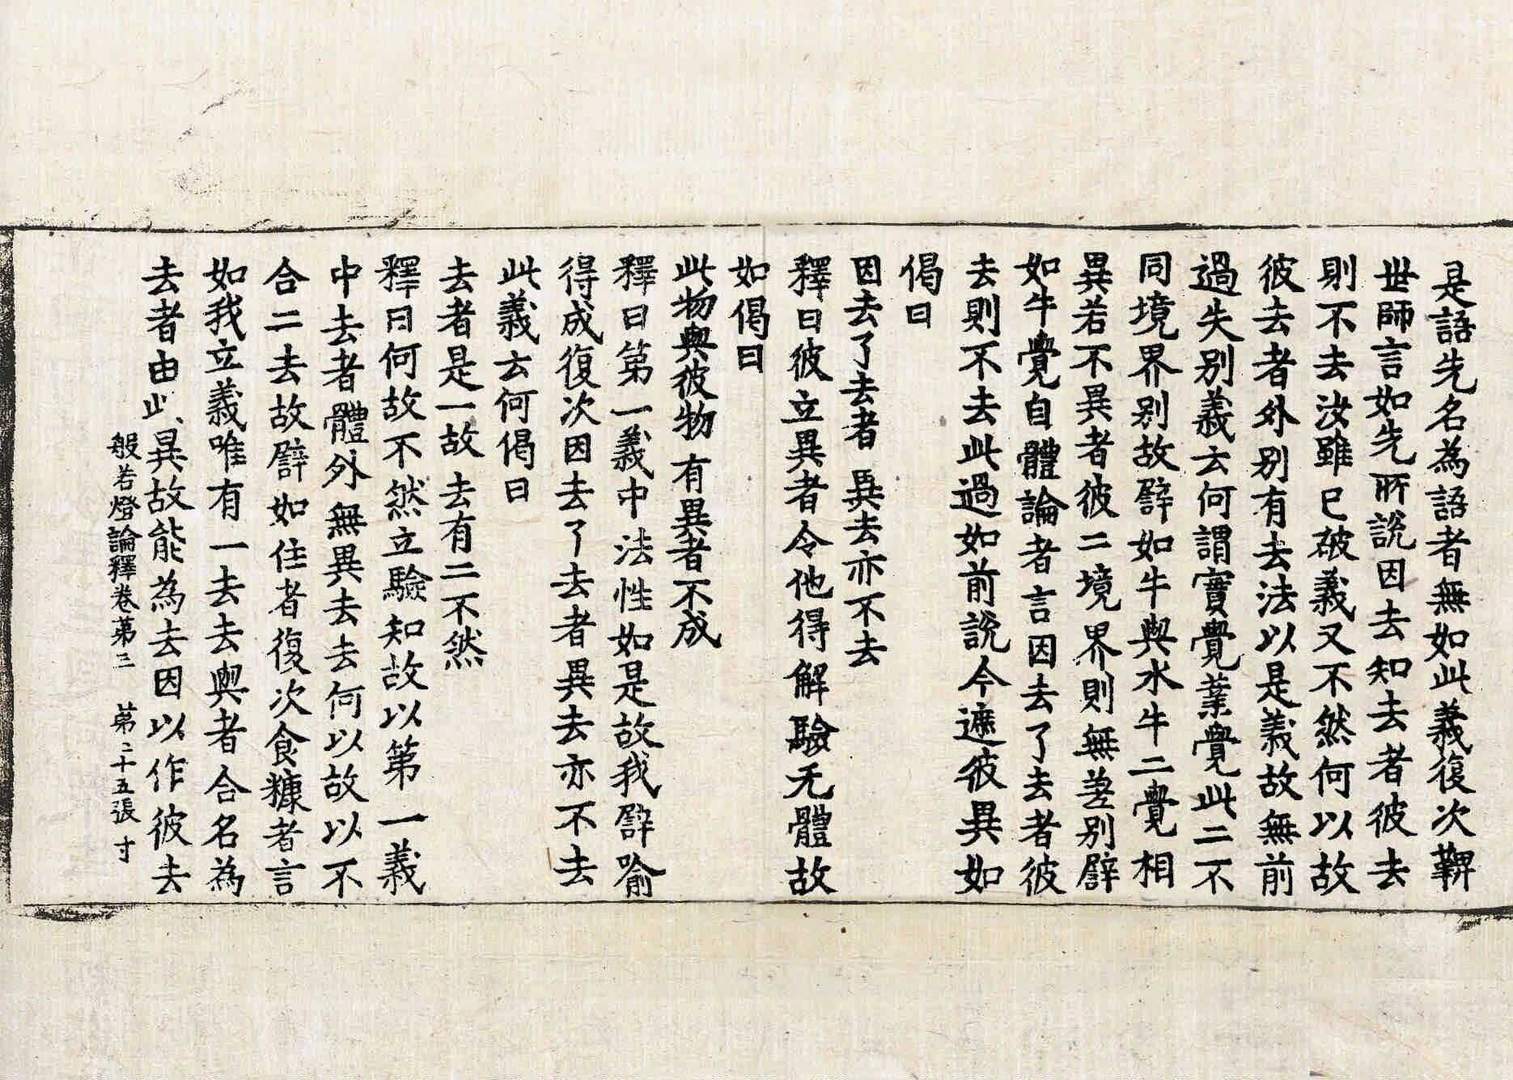 是語先名為語者無如此義復次鞞
世師言如先所說因去知去者彼去
則不去汝雖已破義又不然何以故
彼去者外別有去法以是義故無前
過失別義云何謂實覺業覺此二不
同境界別故譬如牛與水牛二覺相
異若不異者彼二境界則無差別譬
如牛覺自體論者言因去了去者彼
去則不去此過如前說今遮彼異如
偈曰
因去了去者異去亦不去
釋曰彼立異者令他得解驗无體故
如偈曰
此物與彼物有異者不成
釋曰第一義中法性如是故我譬喻
得成復次因去了去者異去亦不去
此義云何偈曰
去者是一故去有二不然
釋曰何故不然立驗知故以第一義
中去者體外無異去去何以故以不
合二去故譬如住者復次食糠者言
如我立義唯有一去去與者合名為
去者由此異故能為去因以作彼去
般若燈論釋卷第三 第二十五張 寸